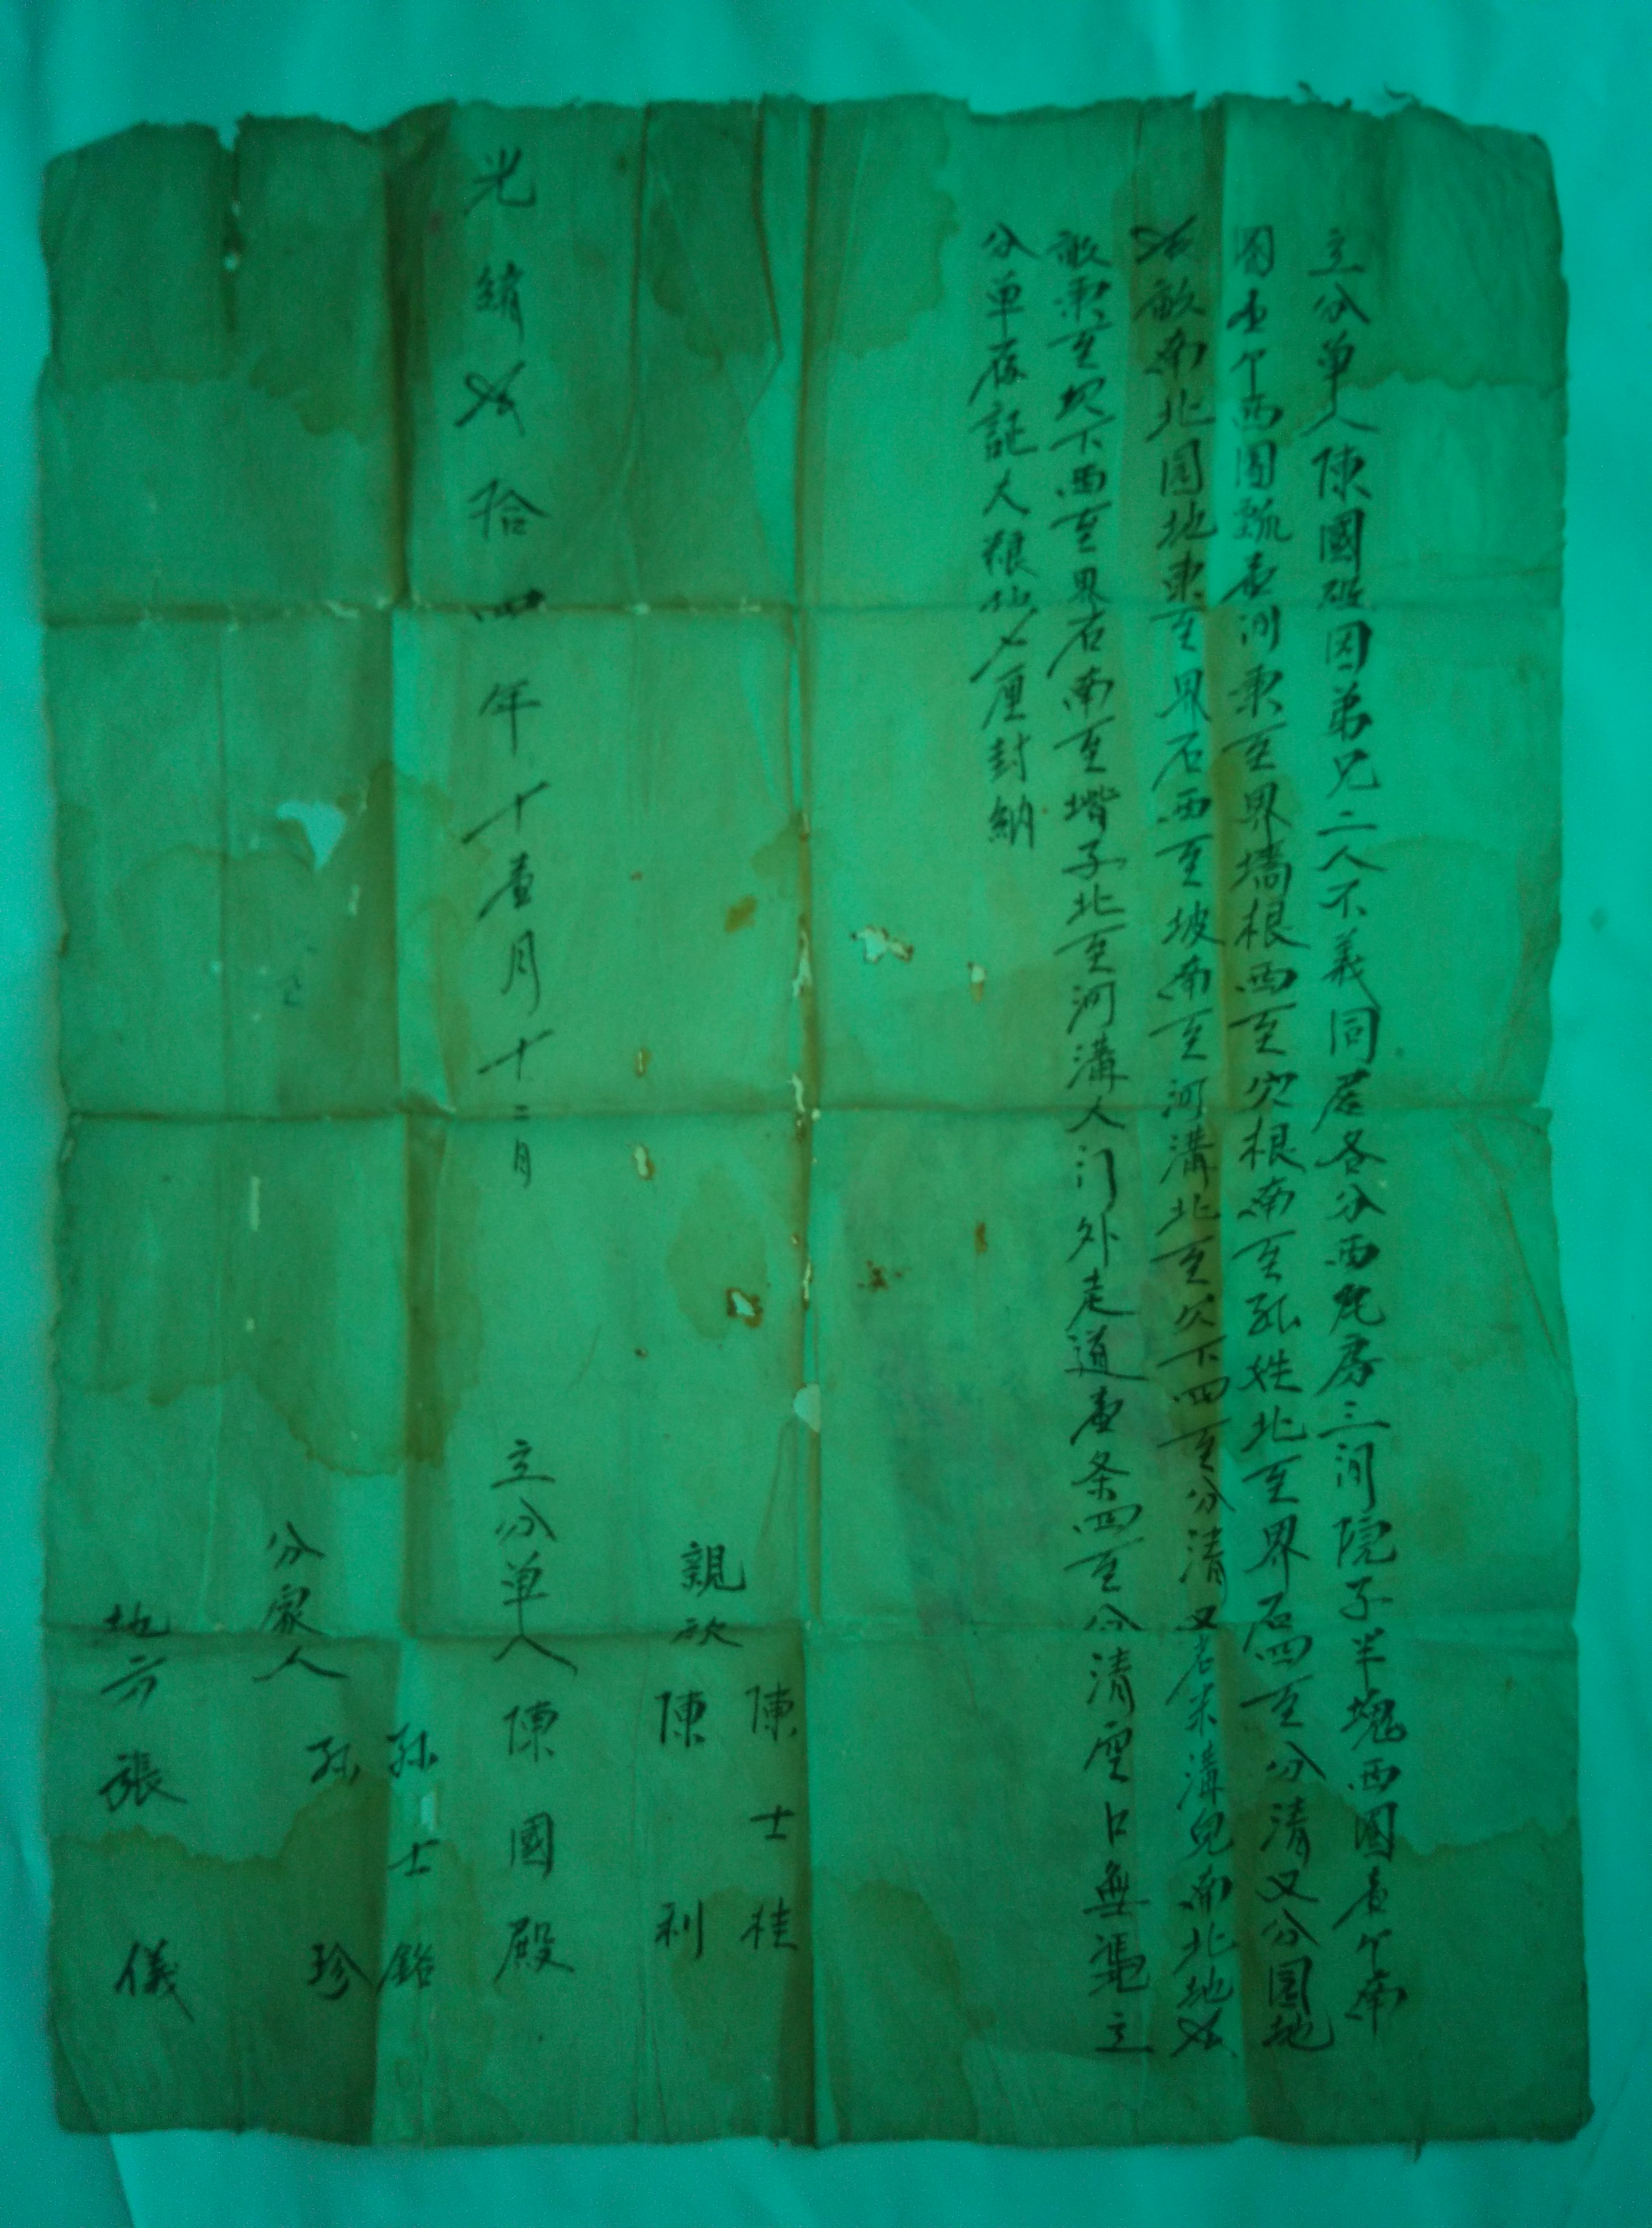 立分单人陳國殿因弟兄二人不義同居各分西瓦房三间院子半塊西園壹个南
園壹个西園壹间東至界墻根西至穴根南至孫姓北至界石四至分清又分園地
畝南北園地東至界石西至坡南至河溝北至穴下四至分清又名米溝兒南北地
畝東至坎下西至界石南至堦子北至河溝人门外走道壹条四至分清空口無憑立
分单存証人粮厘封納
親
陳士桂
陳利
立分单人陳國殿
光緒拾四年十壹月十二月
孫士銘
分家人
孫珍
地方張儀